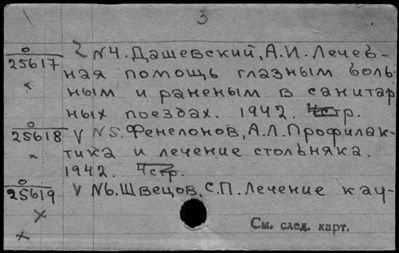 3
25617 2 N4. Дашевский, А.И. Лечеб-
ная помощь глазным боль-
ным и раненым в санитар
ных поездах. 1942. 4стр.
25618 V N5. Фенелонов, А.Л. Профилак-
тика и лечение столбняка.
1942. 4стр.
25619 V N6. Швецов, С.П. Лечение кау-
См. след. карт.